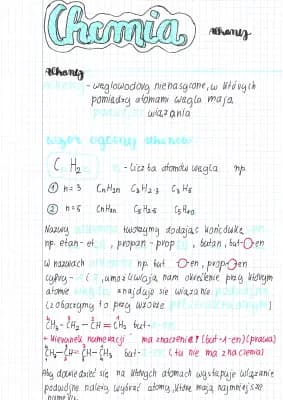 Chemia
alkeny
alkeny
- węglowodory nienasycone, w których
pomiędzy atomami węgla mają
wiązania
wzór ogólny
C H₂ n - liczba atomów węgla np.
① n=3 CnH2n C₃H₂·₃ C₃H₆
② n=5 CnH2n C₅H₂·₅ C₅H₁₀
Nazwy tworzymy dodając końcówkę
np. etan - et , propan - prop , butan, but-en
W nazwach np but -en, prop-en
cyfry - , umożliwiają nam określenie przy którym
atomie znajduje się wiązanie
(zobaczymy to przy wzorze
CH₃-CH₂-CH=CH₂ but-
- kierunek numeracji ma znaczenie! (but-1-en) (prawa)
CH₃-CH=CH-CH₃ but- -en (tu nie ma znaczenia)
Aby dowiedzieć się na których atomach występuje wiązanie
podwójne należy wybrać atomy, które mają najmniejsze
numerki